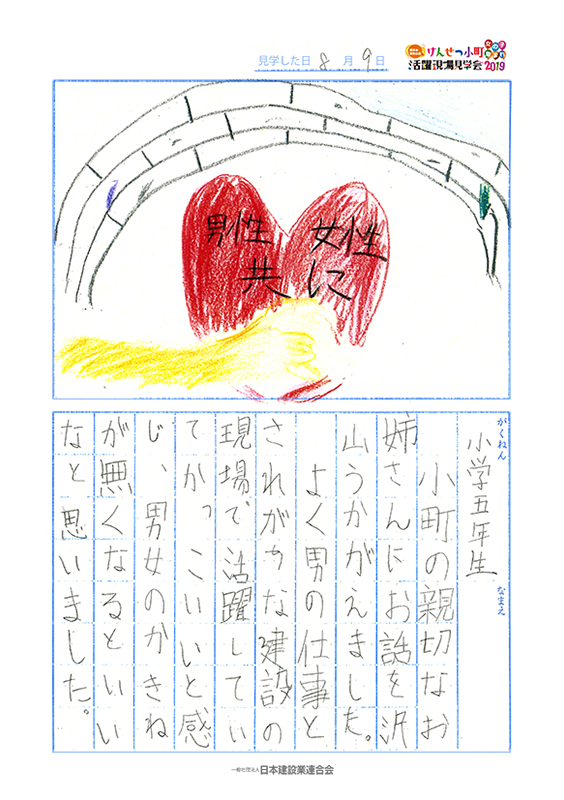 見学した日 8 月 9 日
けんせつ小町
活躍現場見学会2019
男性 女性
共に
がくねん 小学五年生 なまえ
小町の親切なお
姉さんにお話を沢
山うかがえました。
よく男の仕事と
されがちな建設の
現場で活躍してい
てかっこいいと感
じ、男女のかきね
が無くなるといい
なと思いました。
一般社団法人 日本建設業連合会